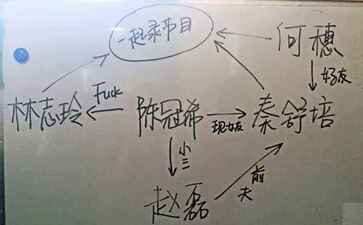 一起录节目
何穗
好友
林志玲
Fuck
陈冠希
现女友
秦舒培
小三
赵磊
前夫